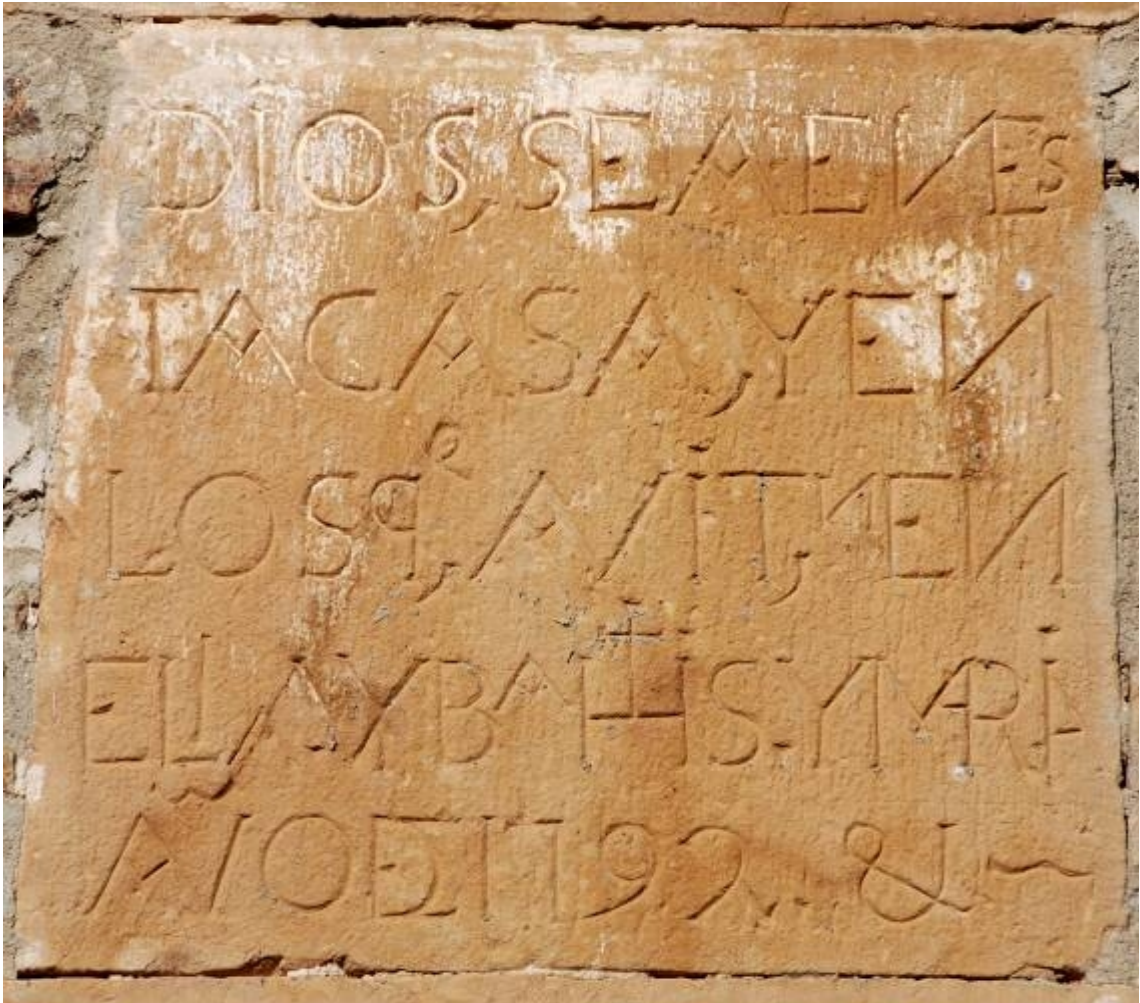 DIOS, SEA EN ES
TA CASA, Y EN
LOS Q, AVIT, N EN
ELLA Y BAUTIS Y MARIA
AÑO DE 1792 &